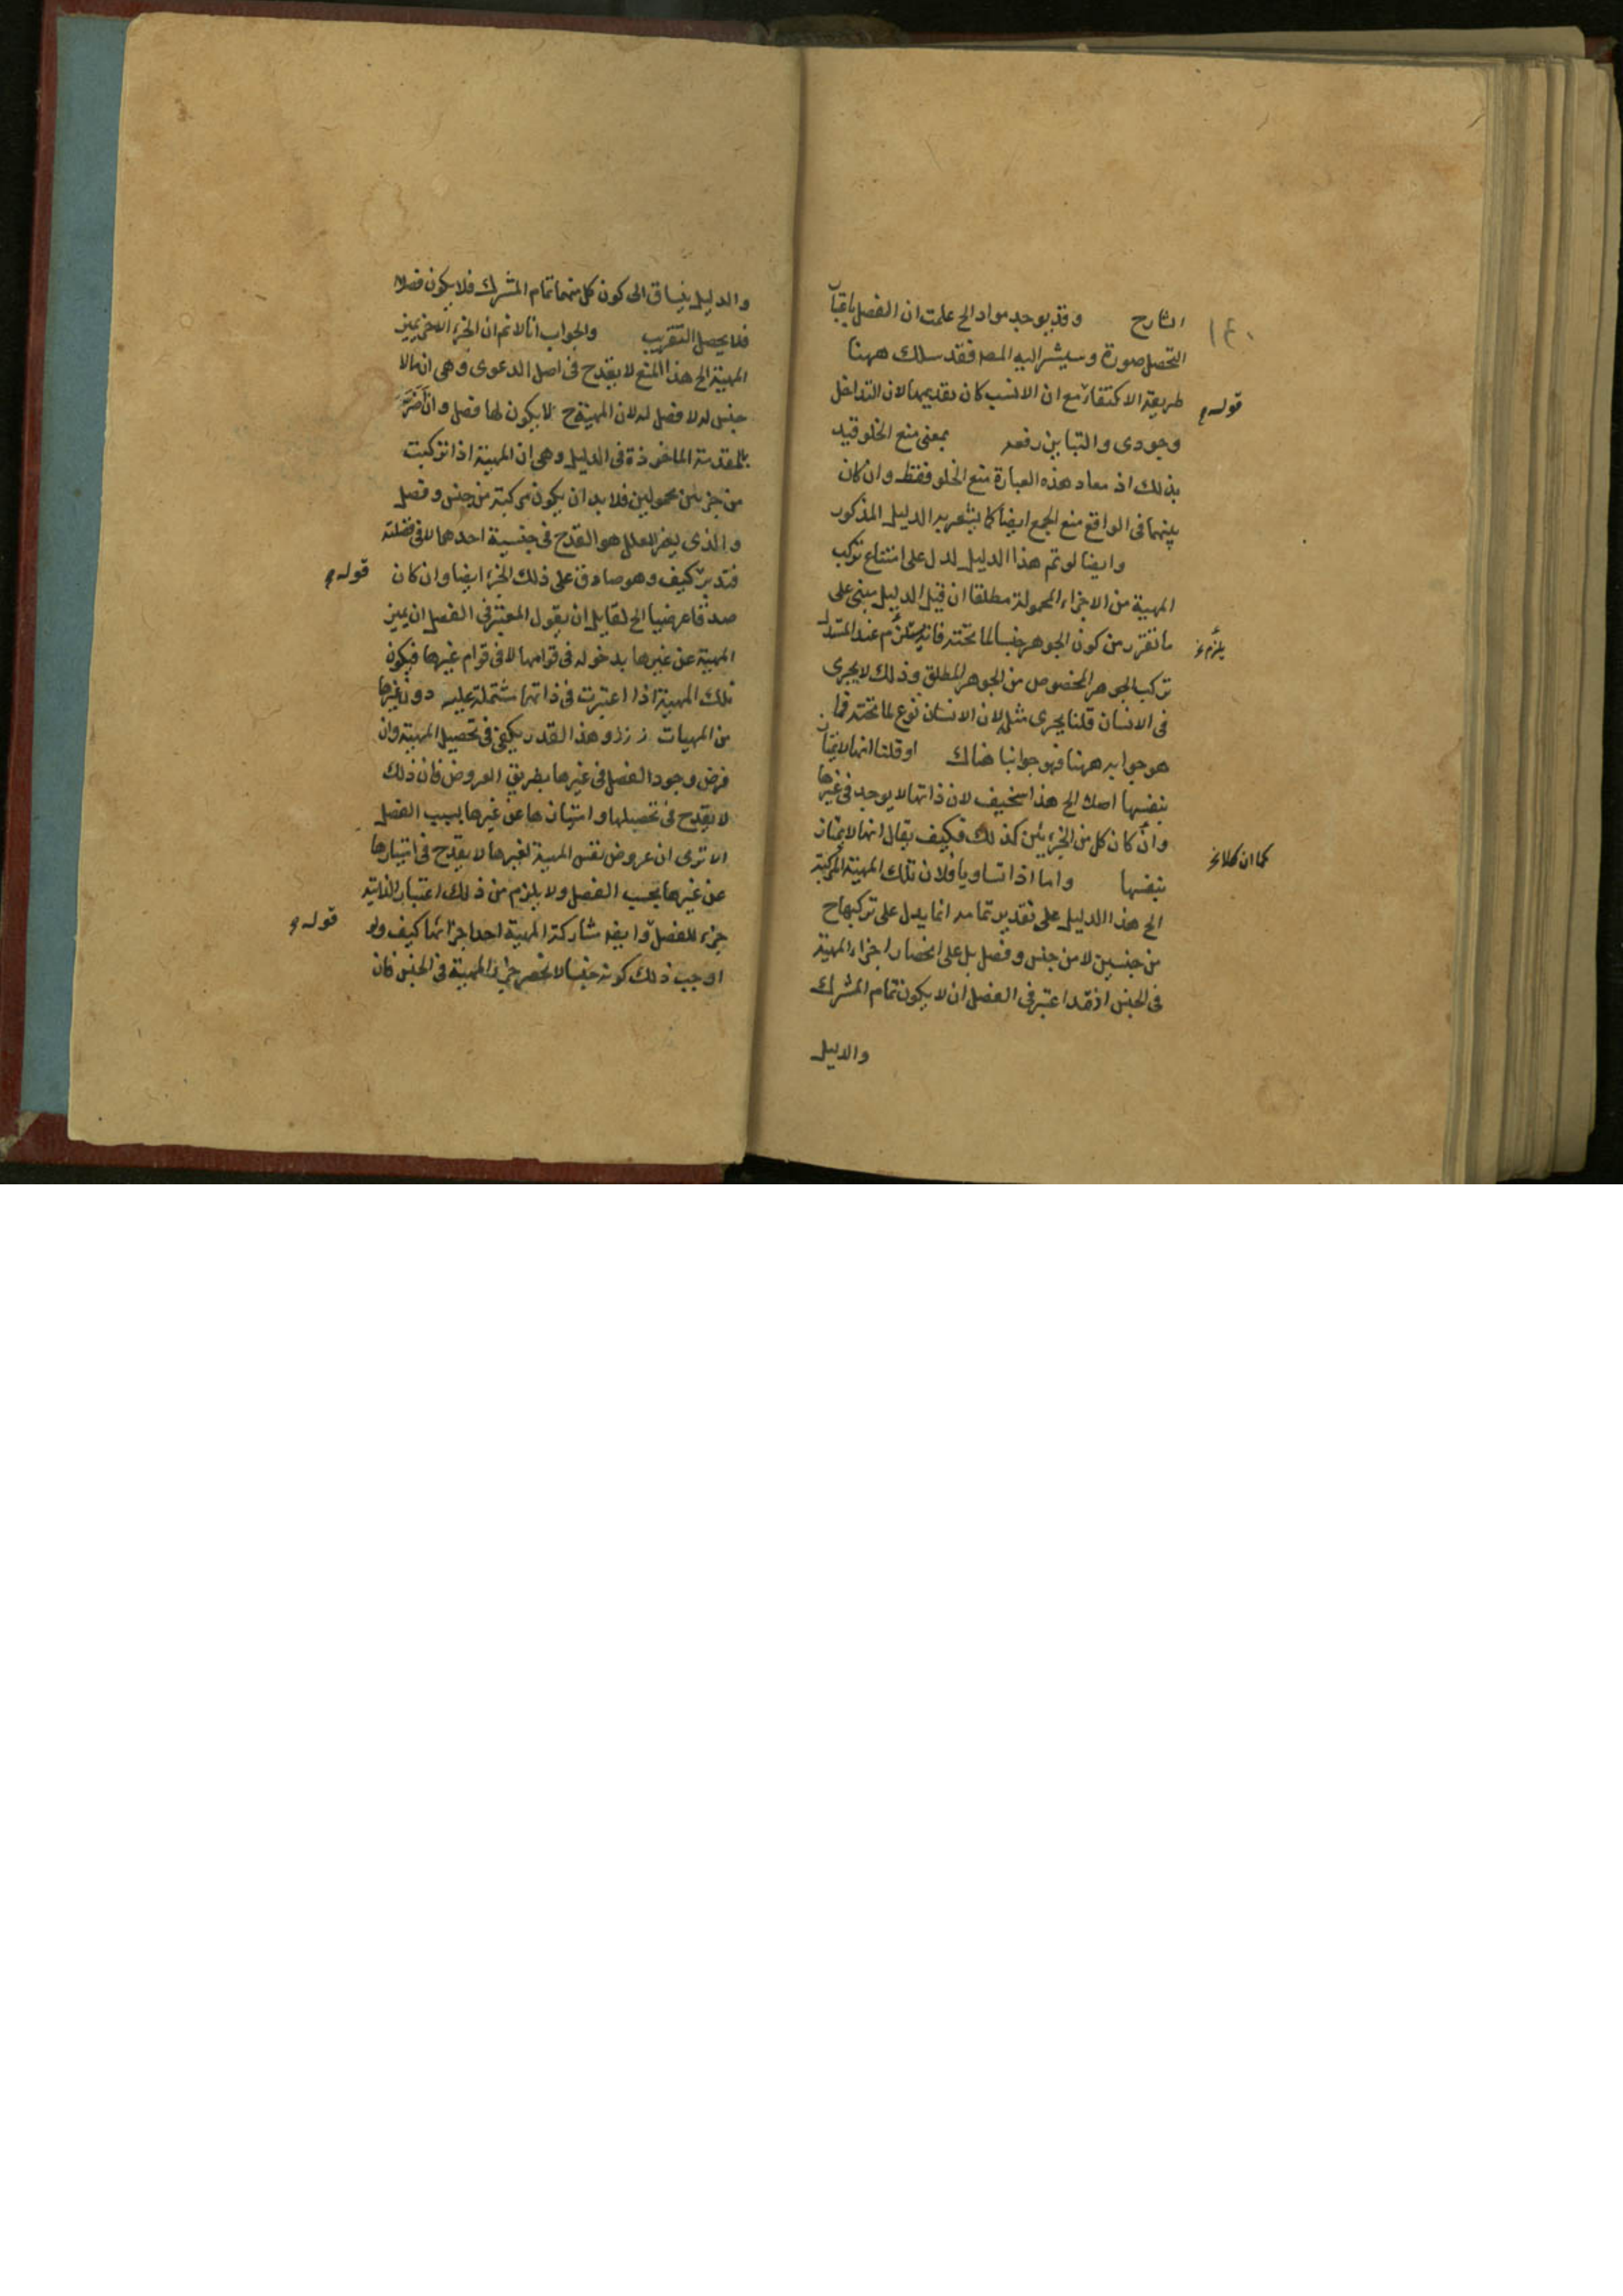 ١٤٠
الشارح وقد يوجد مواد الخ علمت ان الفصل باعتبار
التحصل صورة وسيشير اليه المصـ فقد سلك ههنا
طريقة الاكتفاء مع ان الانسب كان تقديمها لان التداخل
قوله
وجودى والتباين رفعه بمعنى منع الخلو قيد
بذلك اذ مفاد هذه العبارة منع الخلو فقط وان كان
بينهما فى الواقع منع الجمع ايضا كما يشعر به الدليل المذكور
وايضا لو تم هذا الدليل لدل على امتناع تركب
المهية من الاجزاء المحمولة مطلقا ان قيل الدليل مبنى على
ما تقرر من كون الجوهر جنسا لما تحته فانه يستلزم عند المستدل
يلزم
تركب الجوهر المخصوص من الجوهر المطلق وذلك لا يجرى
فى الانسان قلنا يجرى مثله لان الانسان نوع لما تحته فما
هو جوابه ههنا فهو جوابنا هناك او قلنا انها لا تمتاز
بنفسها اصلا الخ هذا سخيف لان ذاتها لا يوجد فى غيرها
وان كان كل من الجزئين كذلك فكيف يقال انها لا تمتاز
كما ان كلا
بنفسها واما اذا تساويا فلان تلك المهية المركبة
الخ هذا الدليل على تقدير تمامه انما يدل على تركبها ح
من جنسين لا من جنس وفصل بل على انحصار اجزاء المهية
فى الجنس اذ قد اعتبر فى الفصل ان لا يكون تمام المشترك
والدليل
والدليل ينساق الى كون كل منهما تمام المشترك فلا يكون فصلا
فلا يحصل التقريب والجواب انا لا نم ان الجزء الاخر يميز
المهية الخ هذا المنع لا يقدح فى اصل الدعوى وهى ان ما لا
جنس له لا فصل له لان المهية ح لا يكون لها فصل وان ضر
بالمقدمة الماخوذة فى الدليل وهى ان المهية اذا تركبت
من جزئين محمولين فلا بد ان يكون مركبة من جنس وفصل
والذى يضر المعلل هو القدح فى جنسية احدهما لا فى فصليته
فتدبر كيف وهو صادق على ذلك الجزء ايضا وان كان
قوله
صدقا عرضيا الخ لقايل ان يقول المعتبر فى الفصل ان يميز
المهية عن غيرها بدخوله فى قوامها لا فى قوام غيرها فيكون
تلك المهية اذا اعتبرت فى ذاتها مشتملة عليه دون غيرها
من المهيات وهذا القدر يكفى فى تحصيل المهية وان
فرض وجود الفصل فى غيرها بطريق العروض فان ذلك
لا يقدح فى تحصيلها وامتيازها عن غيرها بسبب الفصل
الا ترى ان عروض نفس المهية لغيرها لا يقدح فى امتيازها
عن غيرها بحسب الفصل ولا يلزم من ذلك اعتبار الذاتية
جزء للفصل وايضا مشاركة المهية احد اجزائها كيف ولو
قوله
اوجب ذلك كونه جنسا لانحصر جزء المهية فى الجنس فان